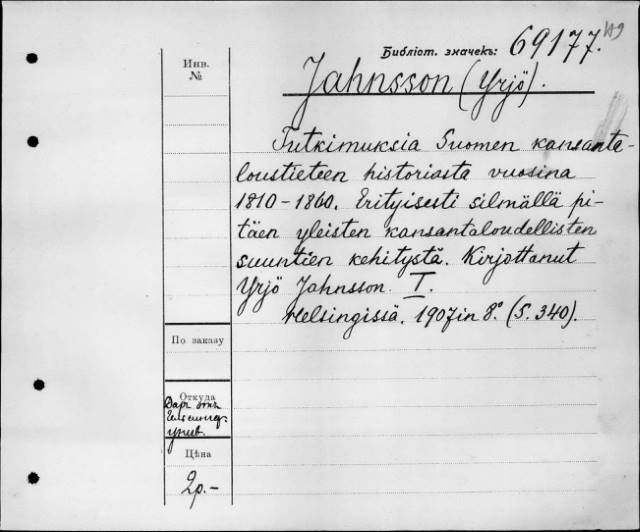 119
Библіот. значекъ: 69177.
Инв.
№
Jahnsson (Yrjö).
Tutkimuksia Suomen kansanta-
loustieteen historiasta vuosina
1810-1860. Erityisesti silmällä pi-
täen yleisten kansantaloudellisten
suuntien kehitystä. Kirjottanut
Yrjö Jahnsson. I.
Helsingissä. 1907 in 8°. (S. 340).
По заказу
Откуда
Даръ отъ
Гельсингф.
унив.
Цѣна
2р.-